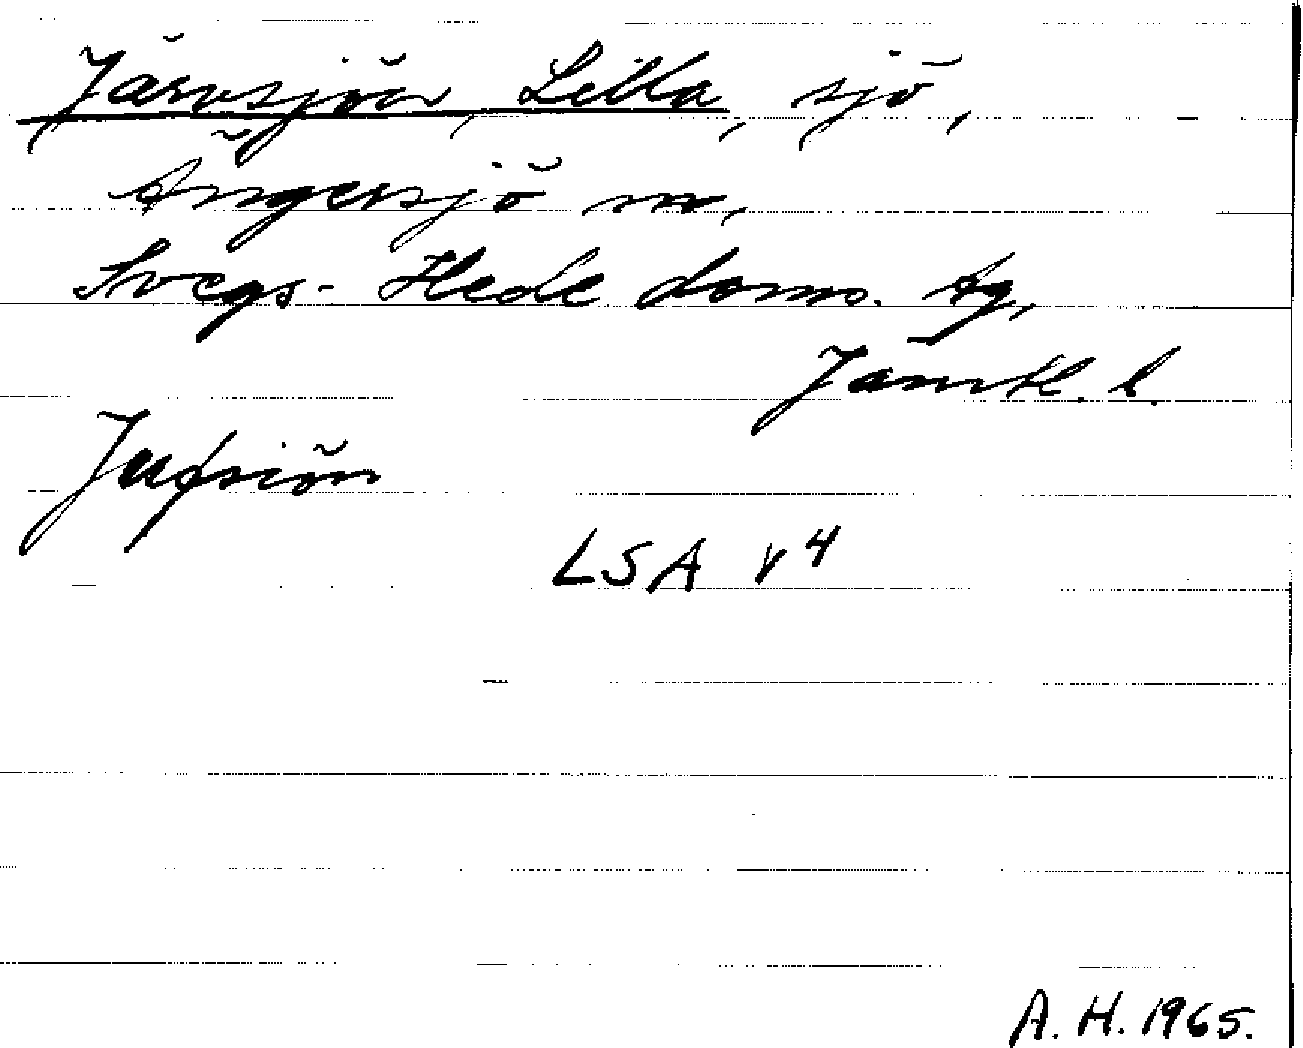 Järvsjön, Lilla, sjö,
Ängersjö sn,
Svegs- Hede doms. tg,
Jämtl. l.
Jerfsiön
LSA V4
A. H. 1965.